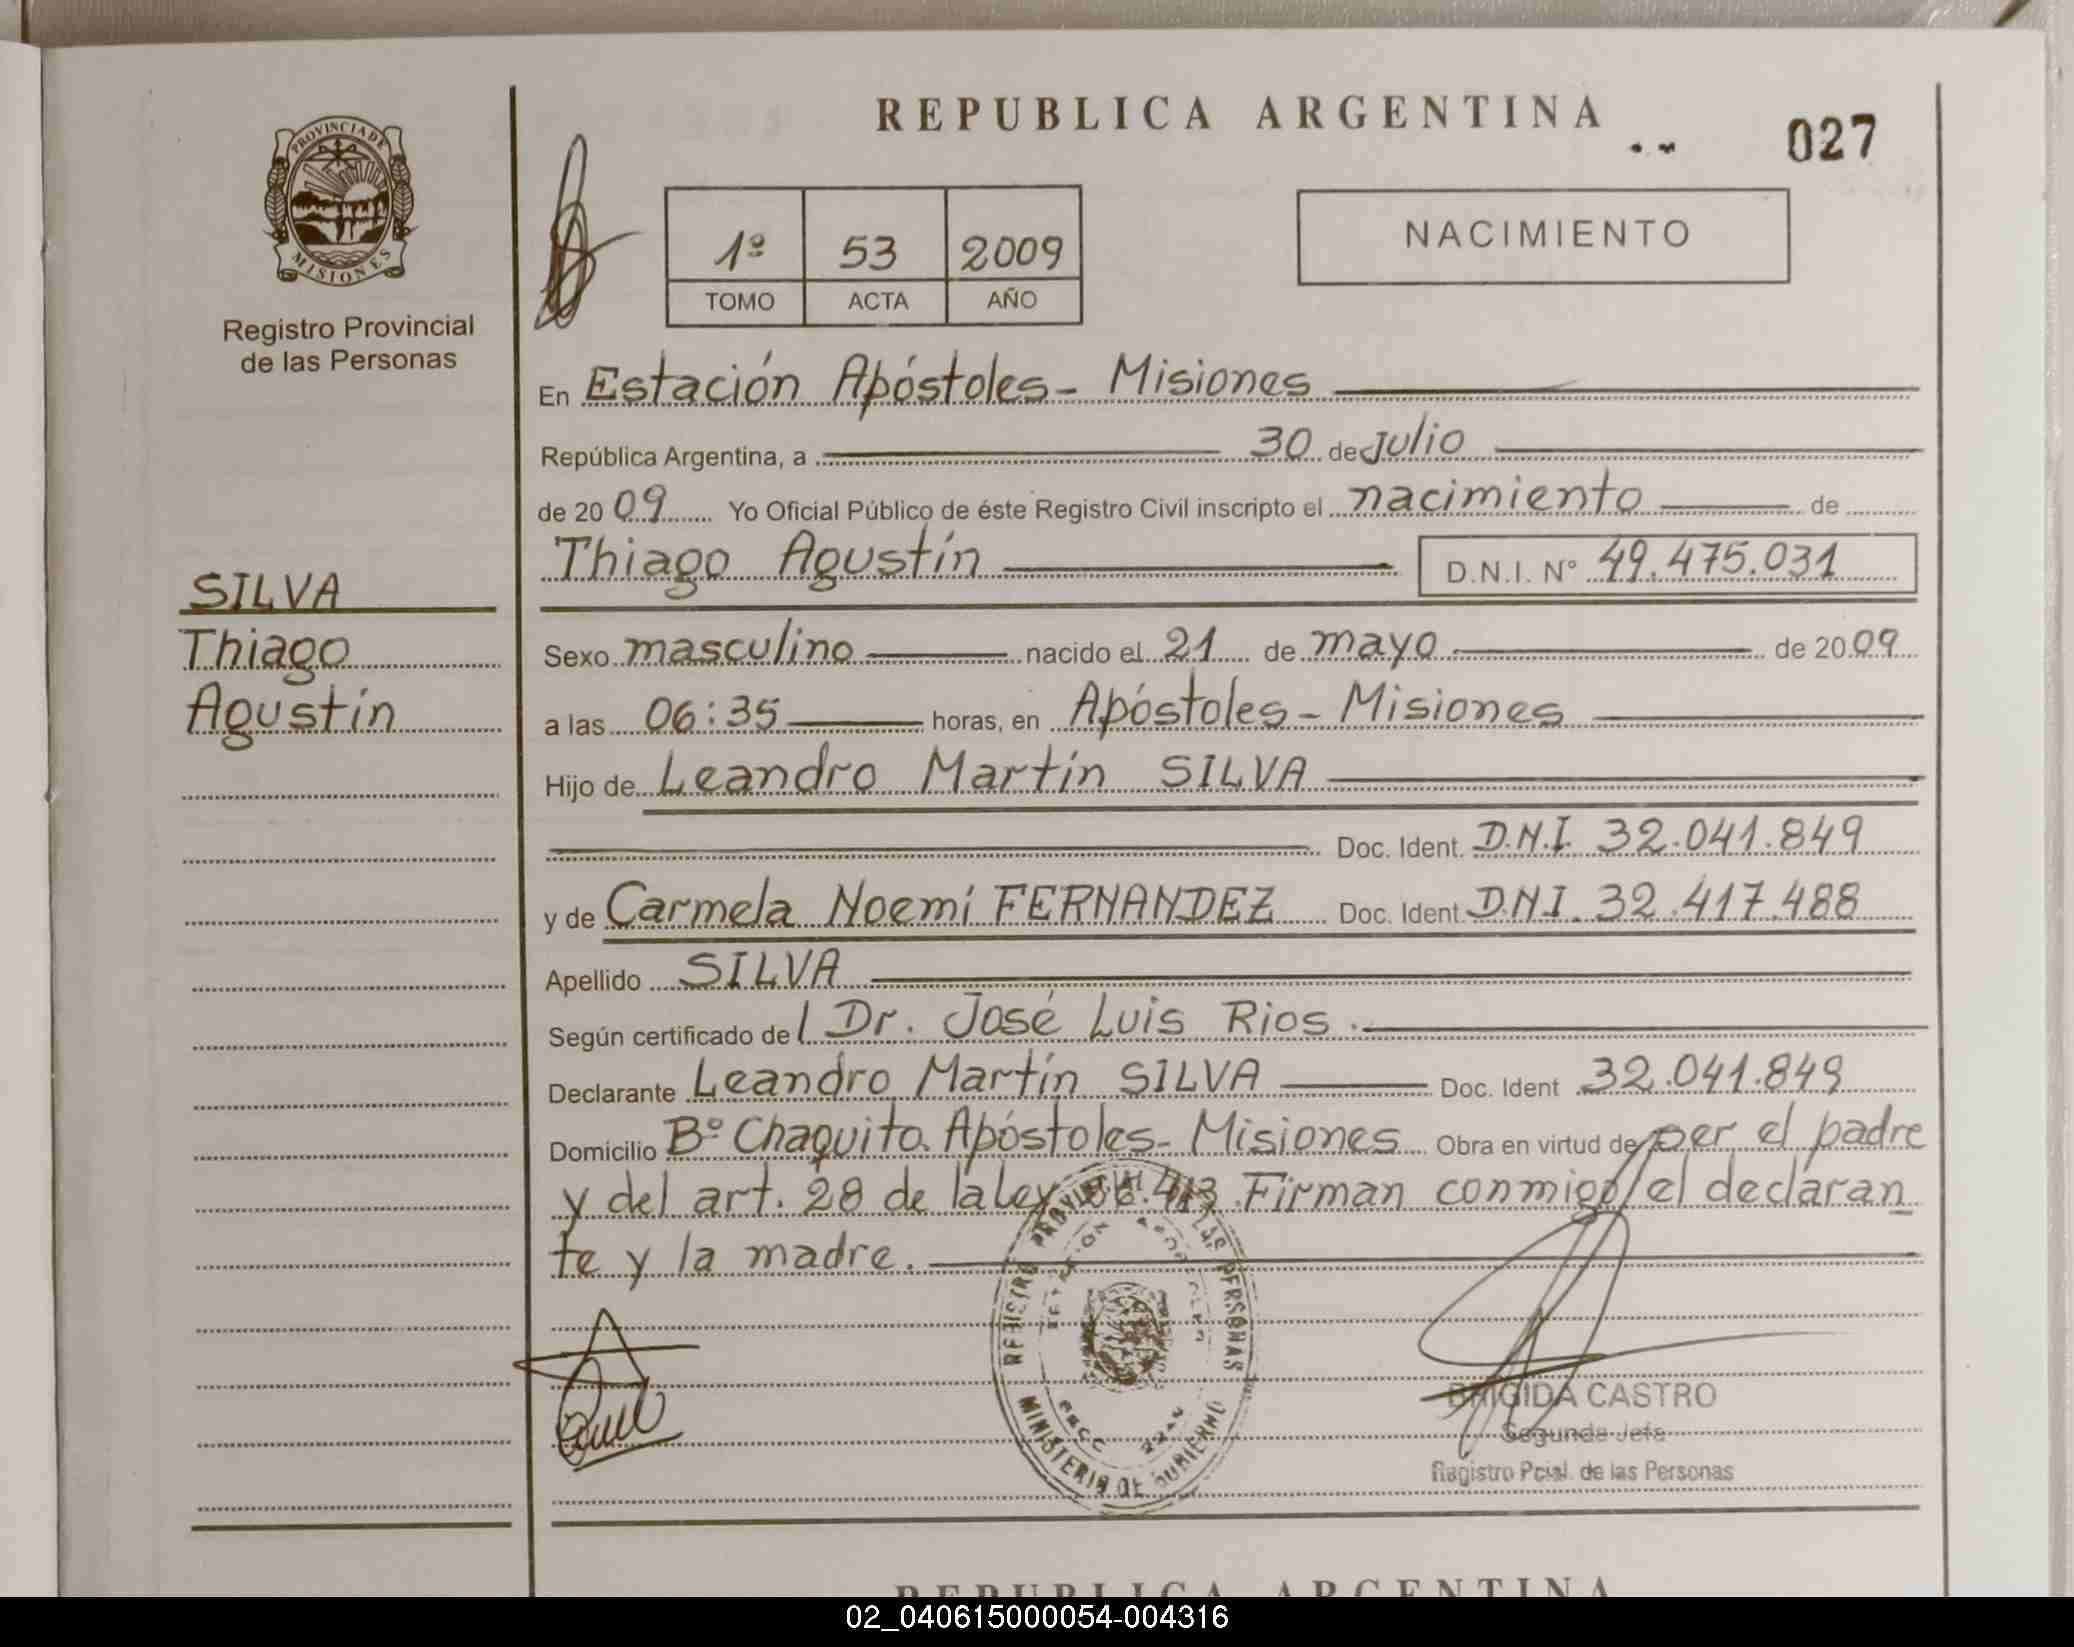 REPUBLICA ARGENTINA
027
PROVINCIA DE
MISIONES
Registro Provincial
de las Personas
1º 53 2009
TOMO ACTA AÑO
NACIMIENTO
En Estación Apóstoles - Misiones
República Argentina, a 30 de Julio
de 2009 Yo Oficial Público de éste Registro Civil inscripto el nacimiento de
Thiago Agustín D.N.I. Nº 49.475.031
SILVA
Thiago
Agustín
Sexo masculino nacido el 21 de mayo de 2009
a las 06:35 horas, en Apóstoles - Misiones
Hijo de Leandro Martín SILVA
Doc. Ident. D.N.I. 32.041.849
y de Carmela Noemí FERNANDEZ Doc. Ident. D.N.I. 32.417.488
Apellido SILVA
Según certificado del Dr. José Luis Rios.
Declarante Leandro Martín SILVA Doc. Ident 32.041.849
Domicilio Bº Chaquito. Apóstoles - Misiones Obra en virtud de ser el padre
y del art. 28 de la Ley 26.413. Firman conmigo el declaran
te y la madre.
REGISTRO PROVINCIAL DE LAS PERSONAS
MINISTERIO DE GOBIERNO
BRIGIDA CASTRO
Segunda Jefa
Registro Pcial. de las Personas
REPUBLICA ARGENTINA
02_040615000054-004316